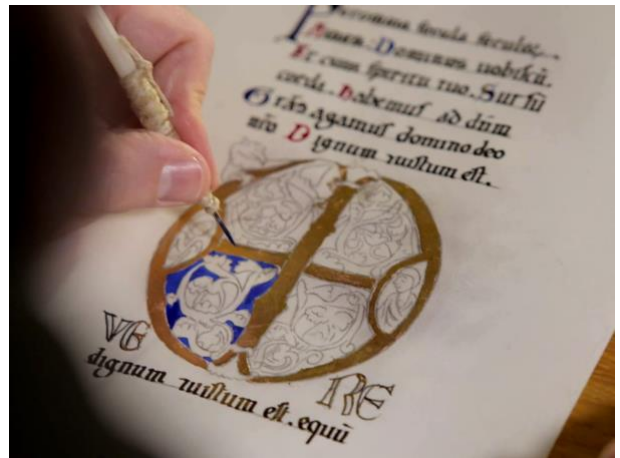 Per omnia secula seculoꝝ.
Amen. Dominus uobiſcū.
Et cum ſpiritu tuo. Surſū
corda. Habemuſ ad dn̄m
Grās agamuſ domino deo
nrō Dignum ⁊ iuſtum eſt.
VE RE
dignum ⁊ iuſtum eſt. equū